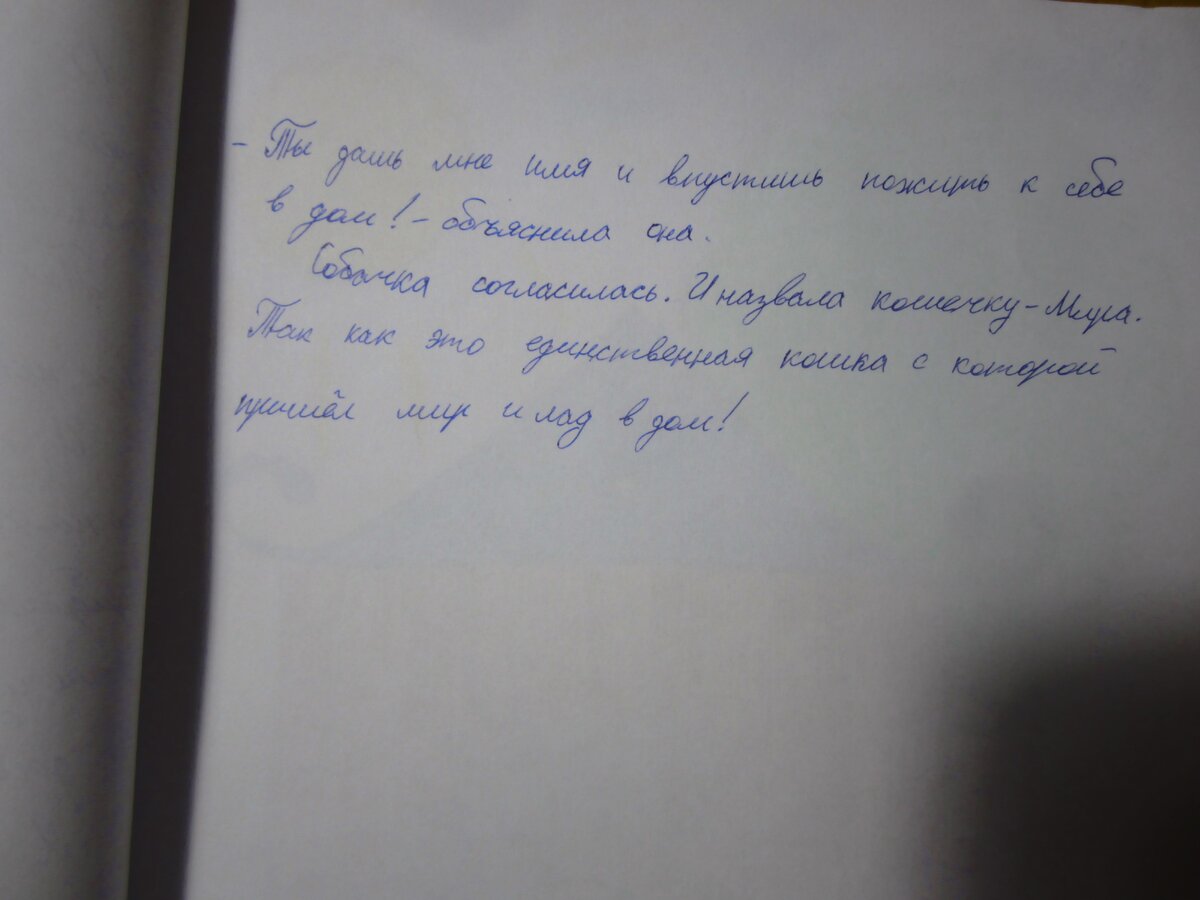 - Ты дашь мне имя и впустишь пожить к себе
в дом! - объяснила она.
Собачка согласилась. И назвала кошечку - Мура.
Так как это единственная кошка с которой
пришёл мир и лад в дом!